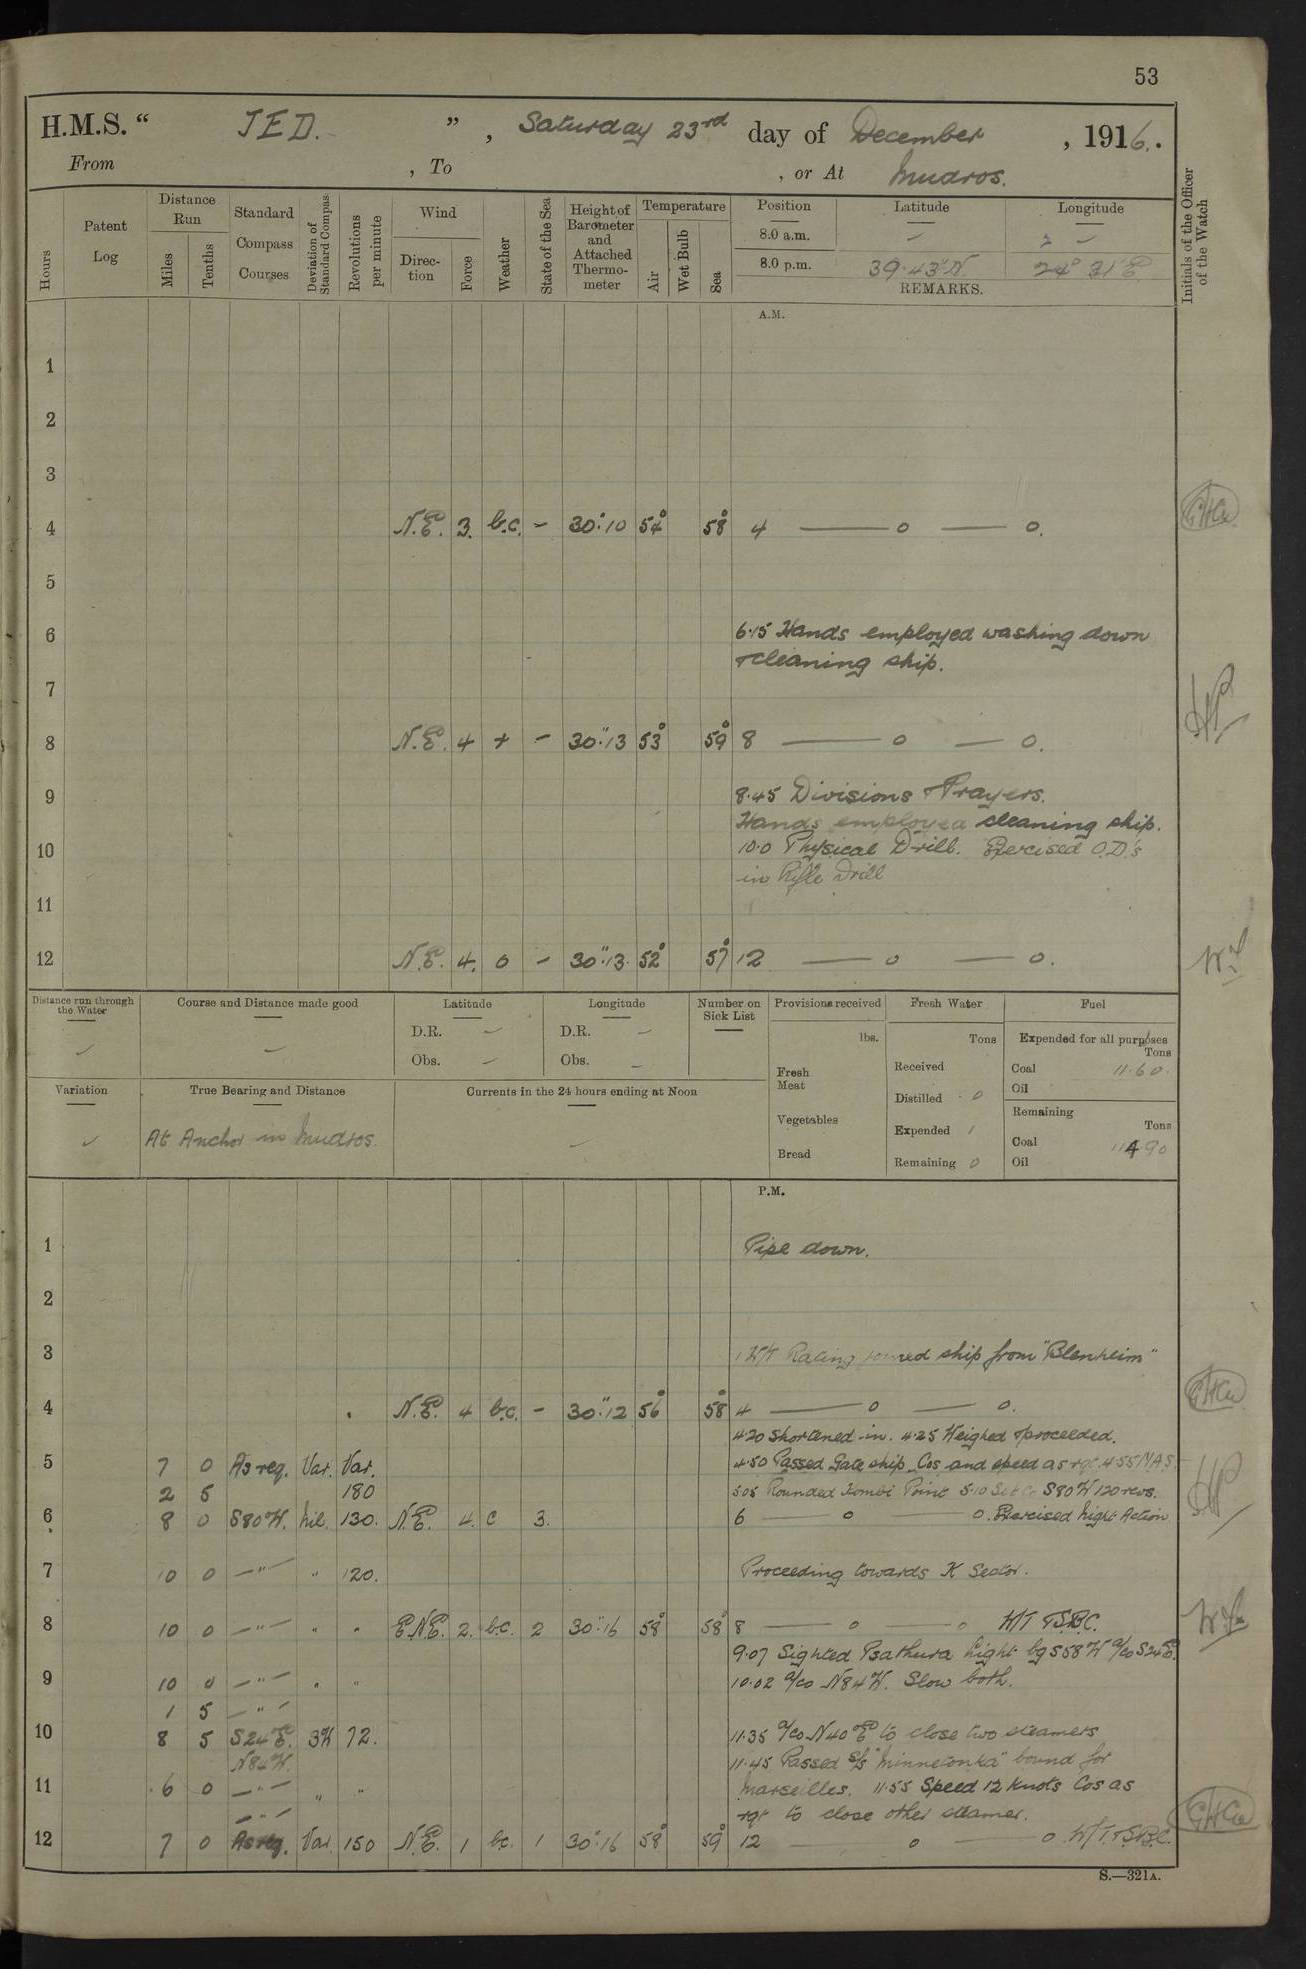 53
H.M.S. “ JED. ” , Saturday 23rd day of December , 1916.
From , To , or At Mudros.
Hours
Patent Log
Distance Run
Miles
Tenths
Standard Compass Courses
Deviation of Standard Compass
Revolutions per minute
Wind
Direction
Force
Weather
State of the Sea
Height of Barometer and Attached Thermometer
Temperature
Air
Wet Bulb
Sea
Position Latitude Longitude
8.0 a.m. – –
8.0 p.m. 39·43'N. 24° 31'E
REMARKS.
Initials of the Officer of the Watch
A.M.
1
2
3
4 N.E. 3. b.c. – 30"·10 54° 58° 4 — o — o.
5
6 6·15 Hands employed washing down
+cleaning ship.
7
8 N.E. 4 + – 30"·13 53° 59° 8 — o — o.
9 8·45 Divisions + Prayers.
Hands employed cleaning ship.
10 10·0 Physical Drill. Exercised O.D's
in Rifle Drill
11
12 N.E. 4. o – 30"·13 52° 57° 12 — o — o.
Distance run through the Water
Course and Distance made good
Latitude
D.R. –
Obs. –
Longitude
D.R. –
Obs. –
Number on Sick List
Provisions received
lbs.
Fresh Meat
Vegetables
Bread
Fresh Water
Tons
Received
Distilled 0
Expended 1
Remaining 0
Fuel
Expended for all purposes
Tons
Coal 11·60.
Oil
Remaining
Tons
Coal 114·90
Oil
Variation
True Bearing and Distance
At Anchor in Mudros.
Currents in the 24 hours ending at Noon
P.M.
1 Pipe down.
2
3 1 W/T Rating joined ship from "Blenheim"
4 N.E. 4 b.c. – 30"·12 56° 58° 4 — o — o.
4·20 Shortened-in. 4·25 Weighed +proceeded.
5 7 0 As req. Var. Var. 4·50 Passed Gate ship. Cos and speed as rqr. 4·55 NAS
2 5 180 5·05 Rounded Kombi Point 5·10 Set Co S80W 120 revs.
6 8 0 S80W. nil. 130. N.E. 4. c 3. 6 — o — o. Exercised Night Action
7 10 0 –"– " 120. Proceeding towards K Sector.
8 10 0 –"– " " E.N.E. 2. b.c. 2 30"·16 58° 58° 8 — o — o W/T T.S.B.C.
9·07 Sighted Psathura Light bg S58W a/co S24E.
9 10 0 –"– " " 10·02 a/co N84W. Slow both.
1 5 –"–
10 8 5 S24E. 3W 72. 11·35 a/co N40E to close two steamers
N84W. 11·45 Passed S/S "Minnetonka" bound for
11 6 0 –"– " " Marseilles. 11·55 Speed 12 knots Cos as
–"– rqr to close other steamer.
12 7 0 As req. Var 150 N.E. 1 bc. 1 30"·16 58° 59° 12 — o — o W/T. T.S.B.C.
S.—321A.